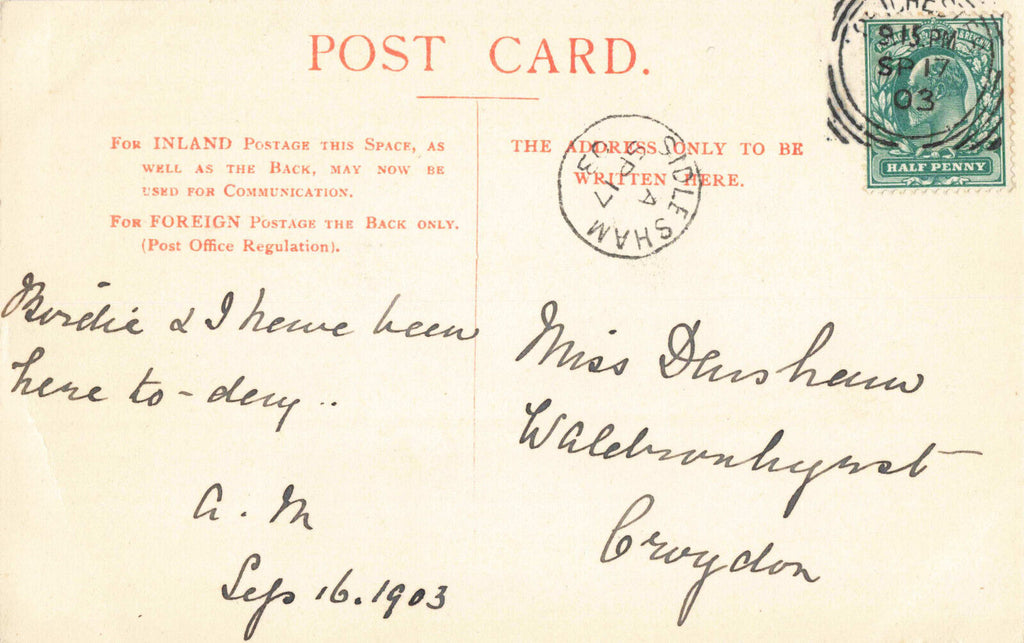 POST CARD.
FOR INLAND POSTAGE THIS SPACE, AS
WELL AS THE BACK, MAY NOW BE
USED FOR COMMUNICATION.
FOR FOREIGN POSTAGE THE BACK ONLY.
(Post Office Regulation).
THE ADDRESS ONLY TO BE
WRITTEN HERE.
SIDLESHAM
A
SP 17
03
8.15 PM
SP 17
03
HALF PENNY
Birdie & I have been
here to-day..
A. M
Sep 16. 1903
Miss Densham
Waldronhyrst
Croydon